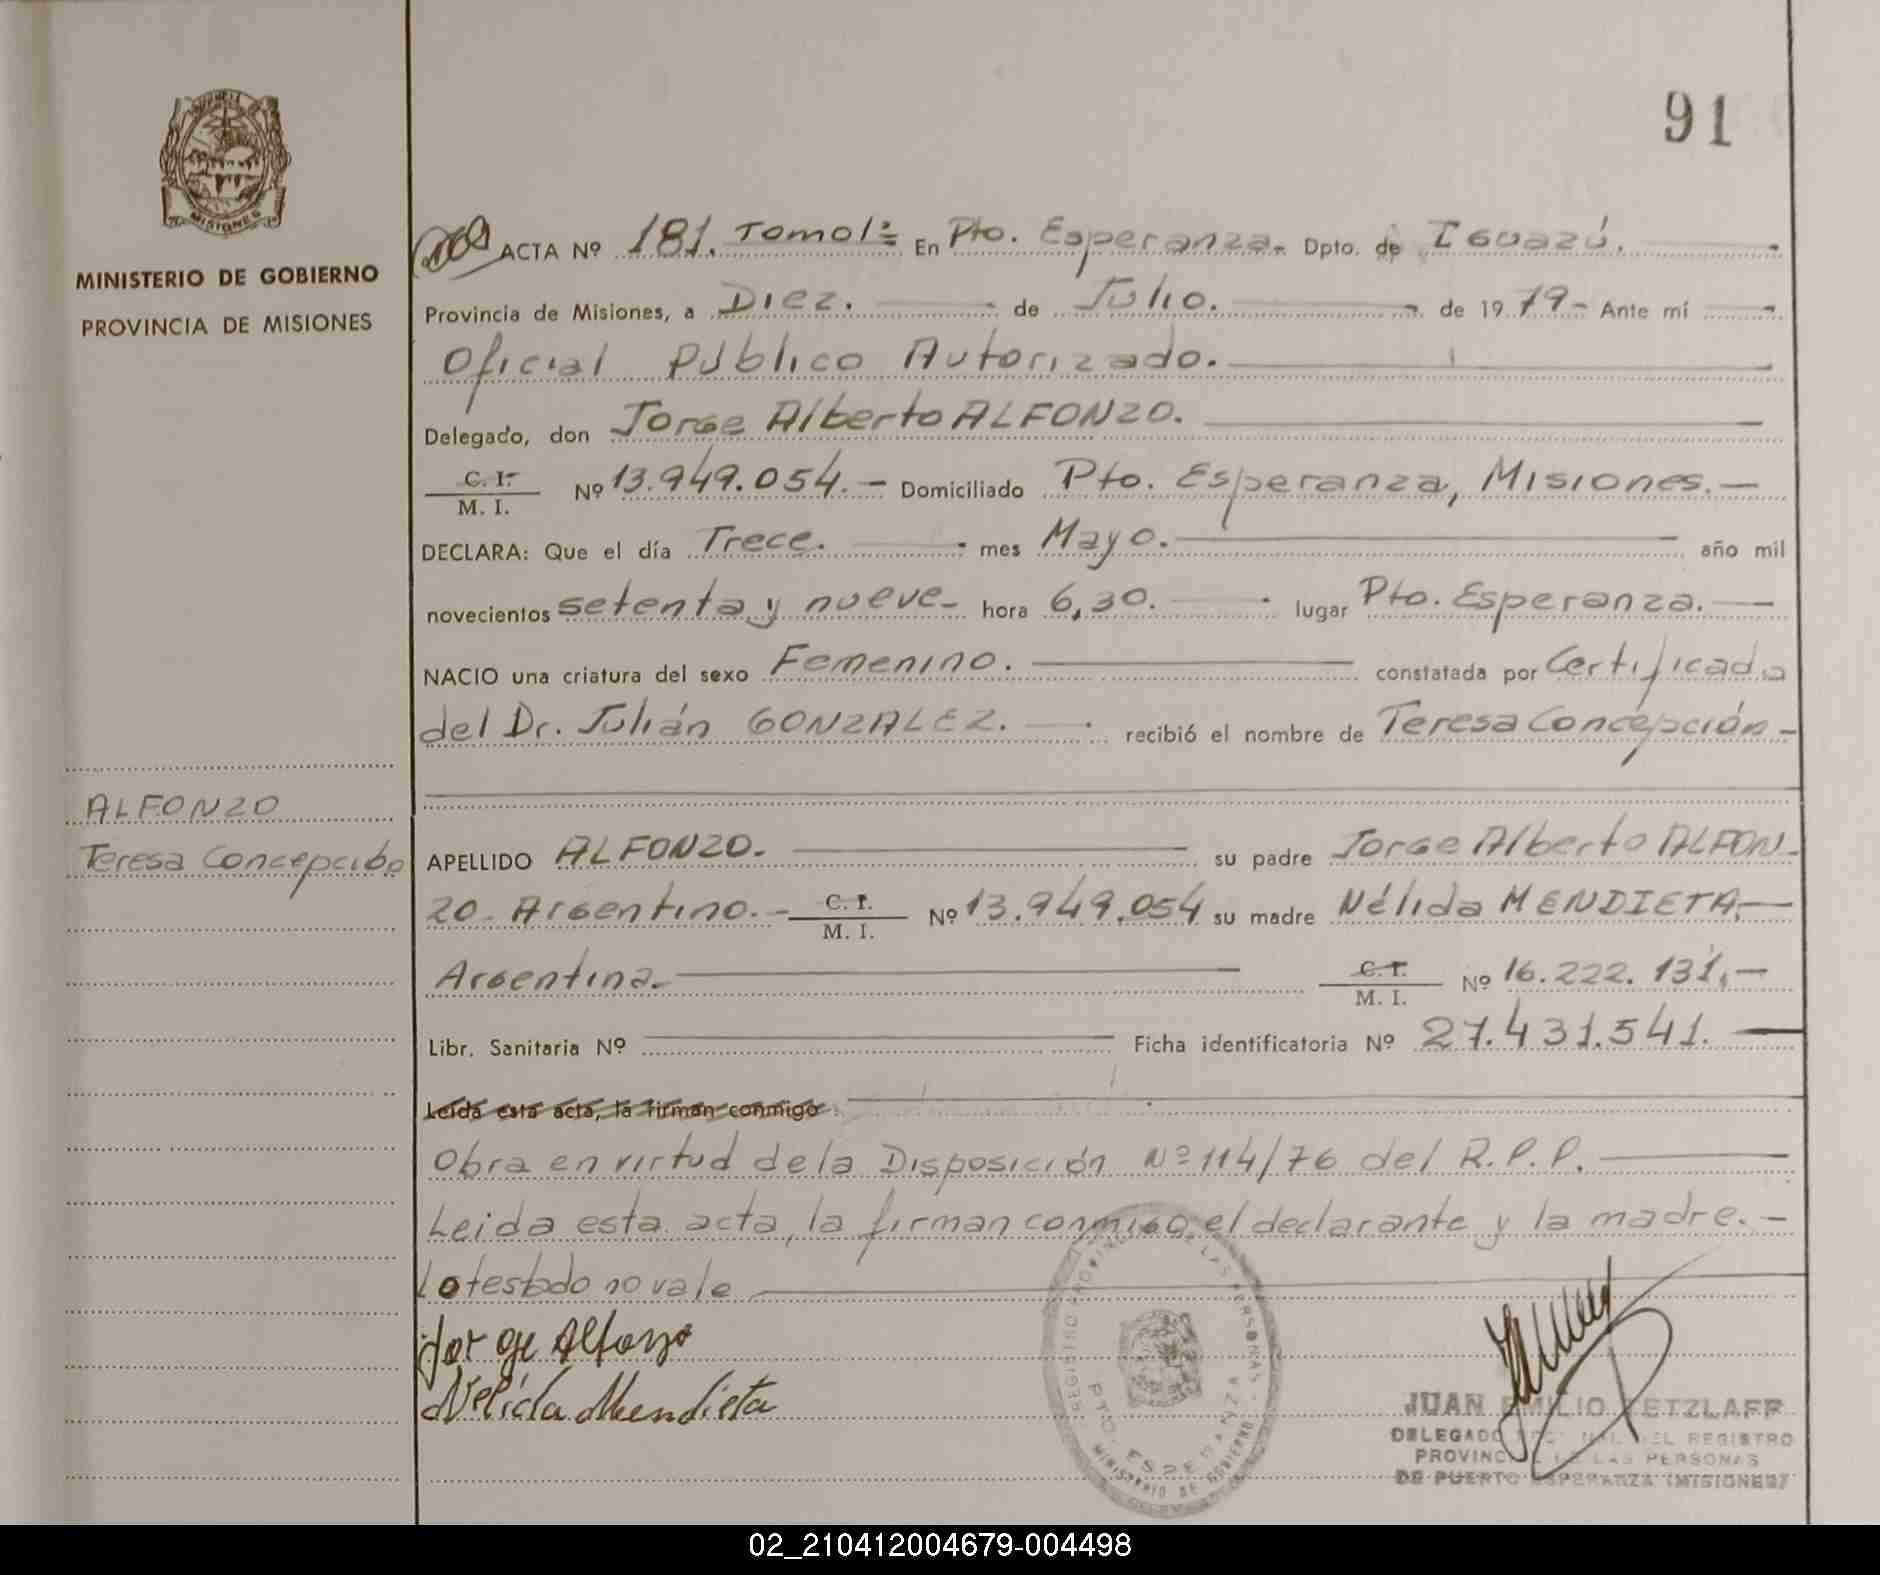 91
MISIONES
MINISTERIO DE GOBIERNO
PROVINCIA DE MISIONES
ALFONZO
Teresa Concepción
ACTA Nº 181. Tomo 1º En Pto. Esperanza. Dpto. de Iguazú.
Provincia de Misiones, a Diez. de Julio. de 1979- Ante mí
Oficial Público Autorizado.
Delegado, don Jorge Alberto ALFONZO.
C. I.
M. I. Nº 13.949.054.- Domiciliado Pto. Esperanza, Misiones.-
DECLARA: Que el día Trece. mes Mayo. año mil
novecientos setenta y nueve- hora 6,30. lugar Pto. Esperanza.-
NACIO una criatura del sexo Femenino. constatada por Certificado
del Dr. Julián GONZALEZ. recibió el nombre de Teresa Concepción-
APELLIDO ALFONZO. su padre Jorge Alberto ALFON-
ZO- Argentino.- C. I. M. I. Nº 13.949.054 su madre Nélida MENDIETA,-
Argentina.- C. I. M. I. Nº 16.222.131,-
Libr. Sanitaria Nº Ficha identificatoria Nº 27.431.541.
Leída esta acta, la firman conmigo
Obra en virtud de la Disposición Nº 114/76 del R.P.P.
Leida esta acta, la firman conmigo el declarante y la madre.-
Lo testado no vale
Jorge Alfonzo
Nelida Mendieta
REGISTRO PROVINCIAL DE LAS PERSONAS
PTO. ESPERANZA
MINISTERIO DE GOBIERNO
JUAN EMILIO RETZLAFF
DELEGADO DEL REGISTRO
PROVINCIAL DE LAS PERSONAS
DE PUERTO ESPERANZA (MISIONES)
02_210412004679-004498